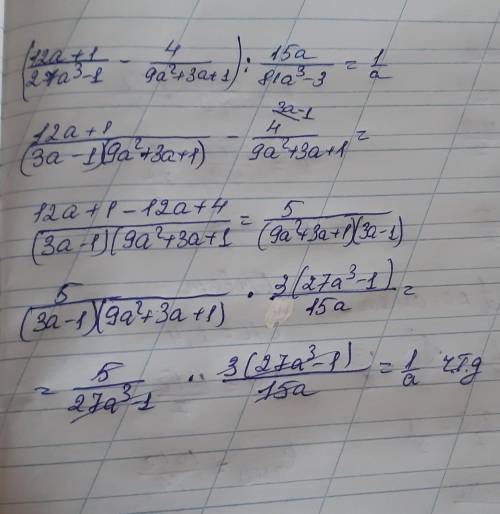 (12a+1/27a³-1 - 4/9a²+3a+1) : 15a/81a³-3 = 1/a
12a+1/(3a-1)(9a²+3a+1) - 3a-1 4/9a²+3a+1 =
12a+1-12a+4/(3a-1)(9a²+3a+1 = 5/(9a²+3a+1)(3a-1)
5/(3a-1)(9a²+3a+1) · 3(27a³-1)/15a =
= 5/27a³-1 · 3(27a³-1)/15a = 1/a чтд